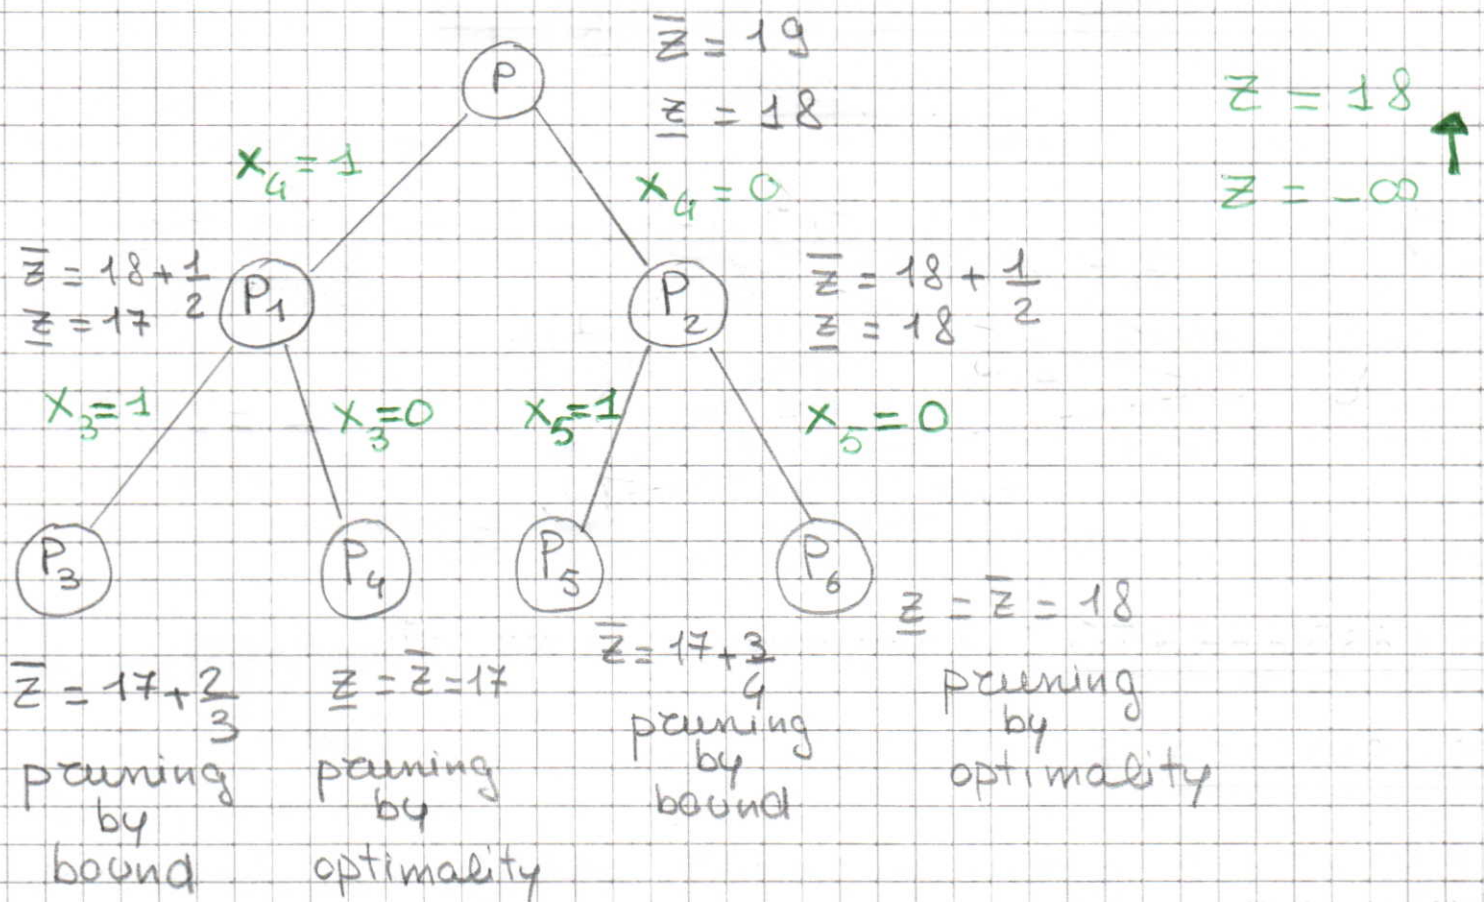 P
z̅ = 19
z̲ = 18
z = 18
z = -∞
x₄ = 1
x₄ = 0
z̅ = 18 + 1/2
z̲ = 17
P₁
P₂
z̅ = 18 + 1/2
z̲ = 18
x₃ = 1
x₃ = 0
x₅ = 1
x₅ = 0
P₃
P₄
P₅
P₆
z̅ = 17 + 2/3
pruning
by
bound
z̲ = z̅ = 17
pruning
by
optimality
z̅ = 17 + 3/4
pruning
by
bound
z̲ = z̅ = 18
pruning
by
optimality